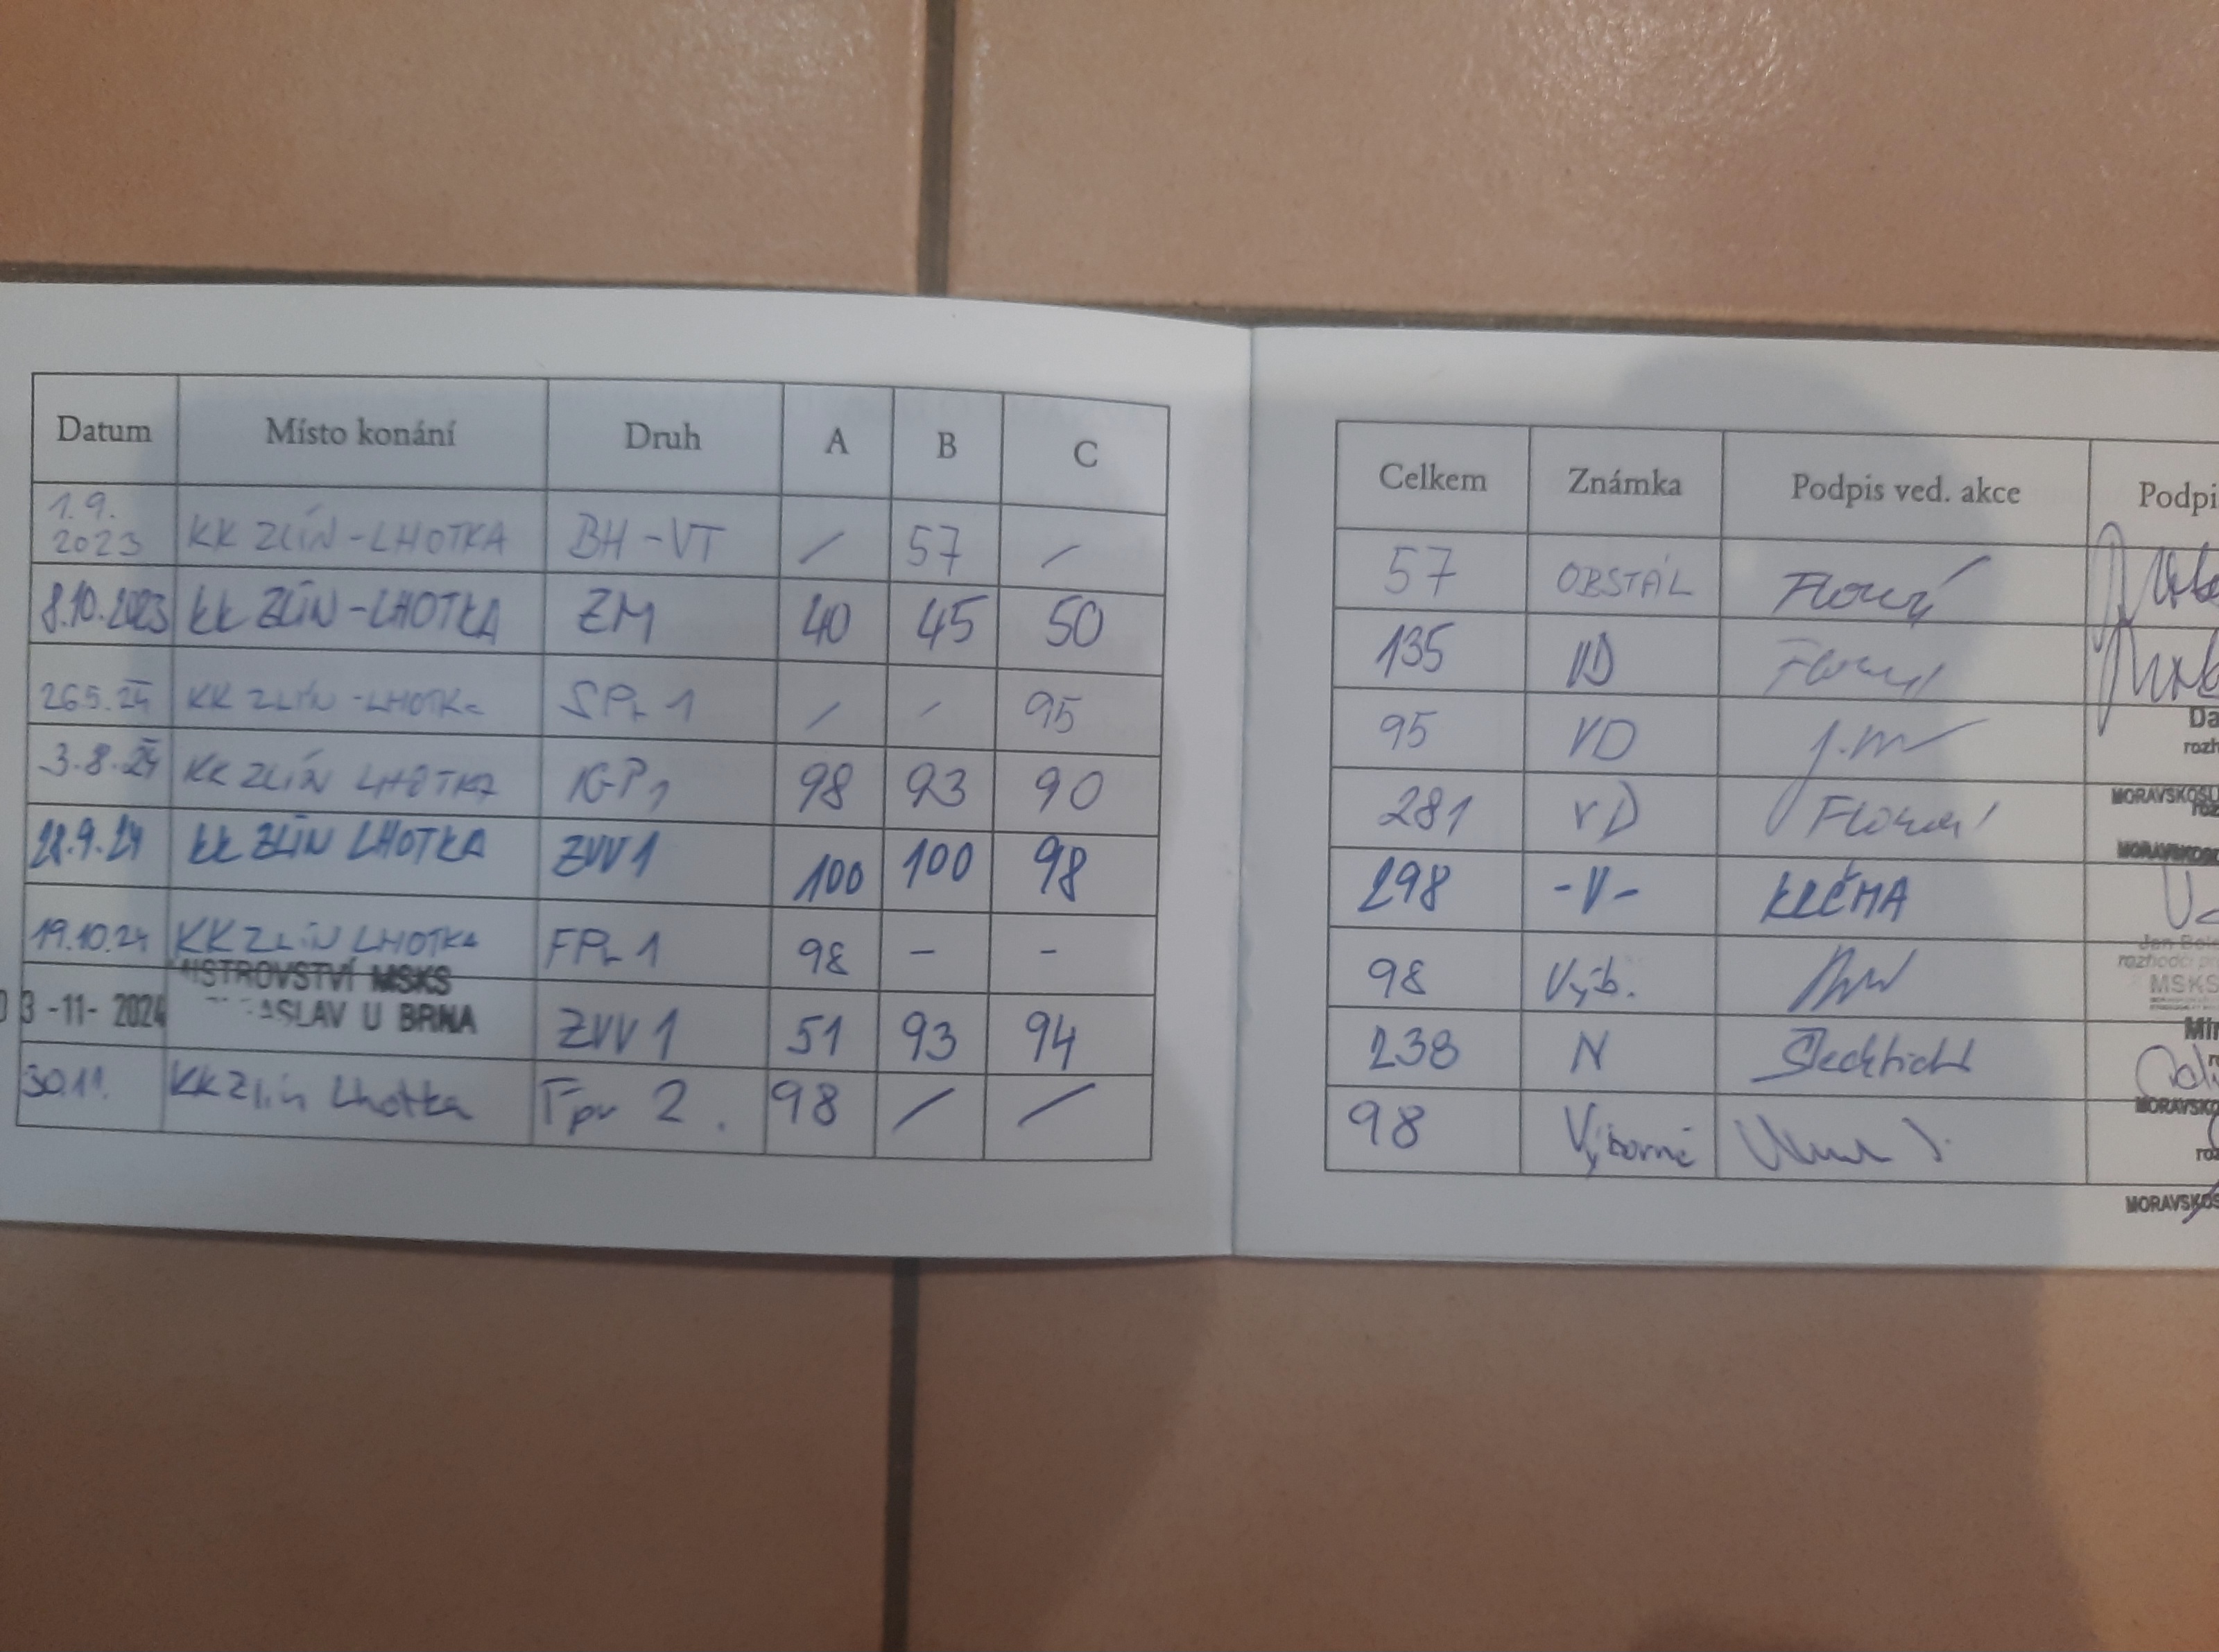 Datum Místo konání Druh A B C
1.9. 2023 KK ZLÍN-LHOTKA BH-VT / 57 /
8.10.2023 KK ZLÍN-LHOTKA ZM 40 45 50
26.5.24 KK ZLÍN-LHOTKA SPr 1 / / 95
3.8.24 KK ZLÍN LHOTKA IGP1 98 93 90
28.9.24 KK ZLÍN LHOTKA ZVV1 100 100 98
19.10.24 KK ZLÍN LHOTKA FPr 1 98 - -
MISTROVSTVÍ MSKS
03-11-2024 U BRNA ZVV 1 51 93 94
30.11. KK Zlín Lhotka Fpr 2. 98 / /
Celkem Známka Podpis ved. akce Podpi
57 OBSTÁL
135 VD
95 VD
281 VD
MORAVSKOSL
298 -V- KLEČKA
98 Výb.
rozhodčí
MSKS
238 N
MORAVSKO
98 Výborně
MORAVSKOS